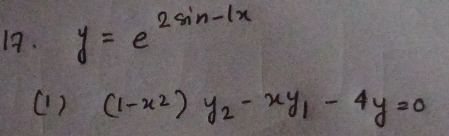 17. y = e^{2 sin-1x}
(1) (1-x²) y₂ - xy₁ - 4y = 0